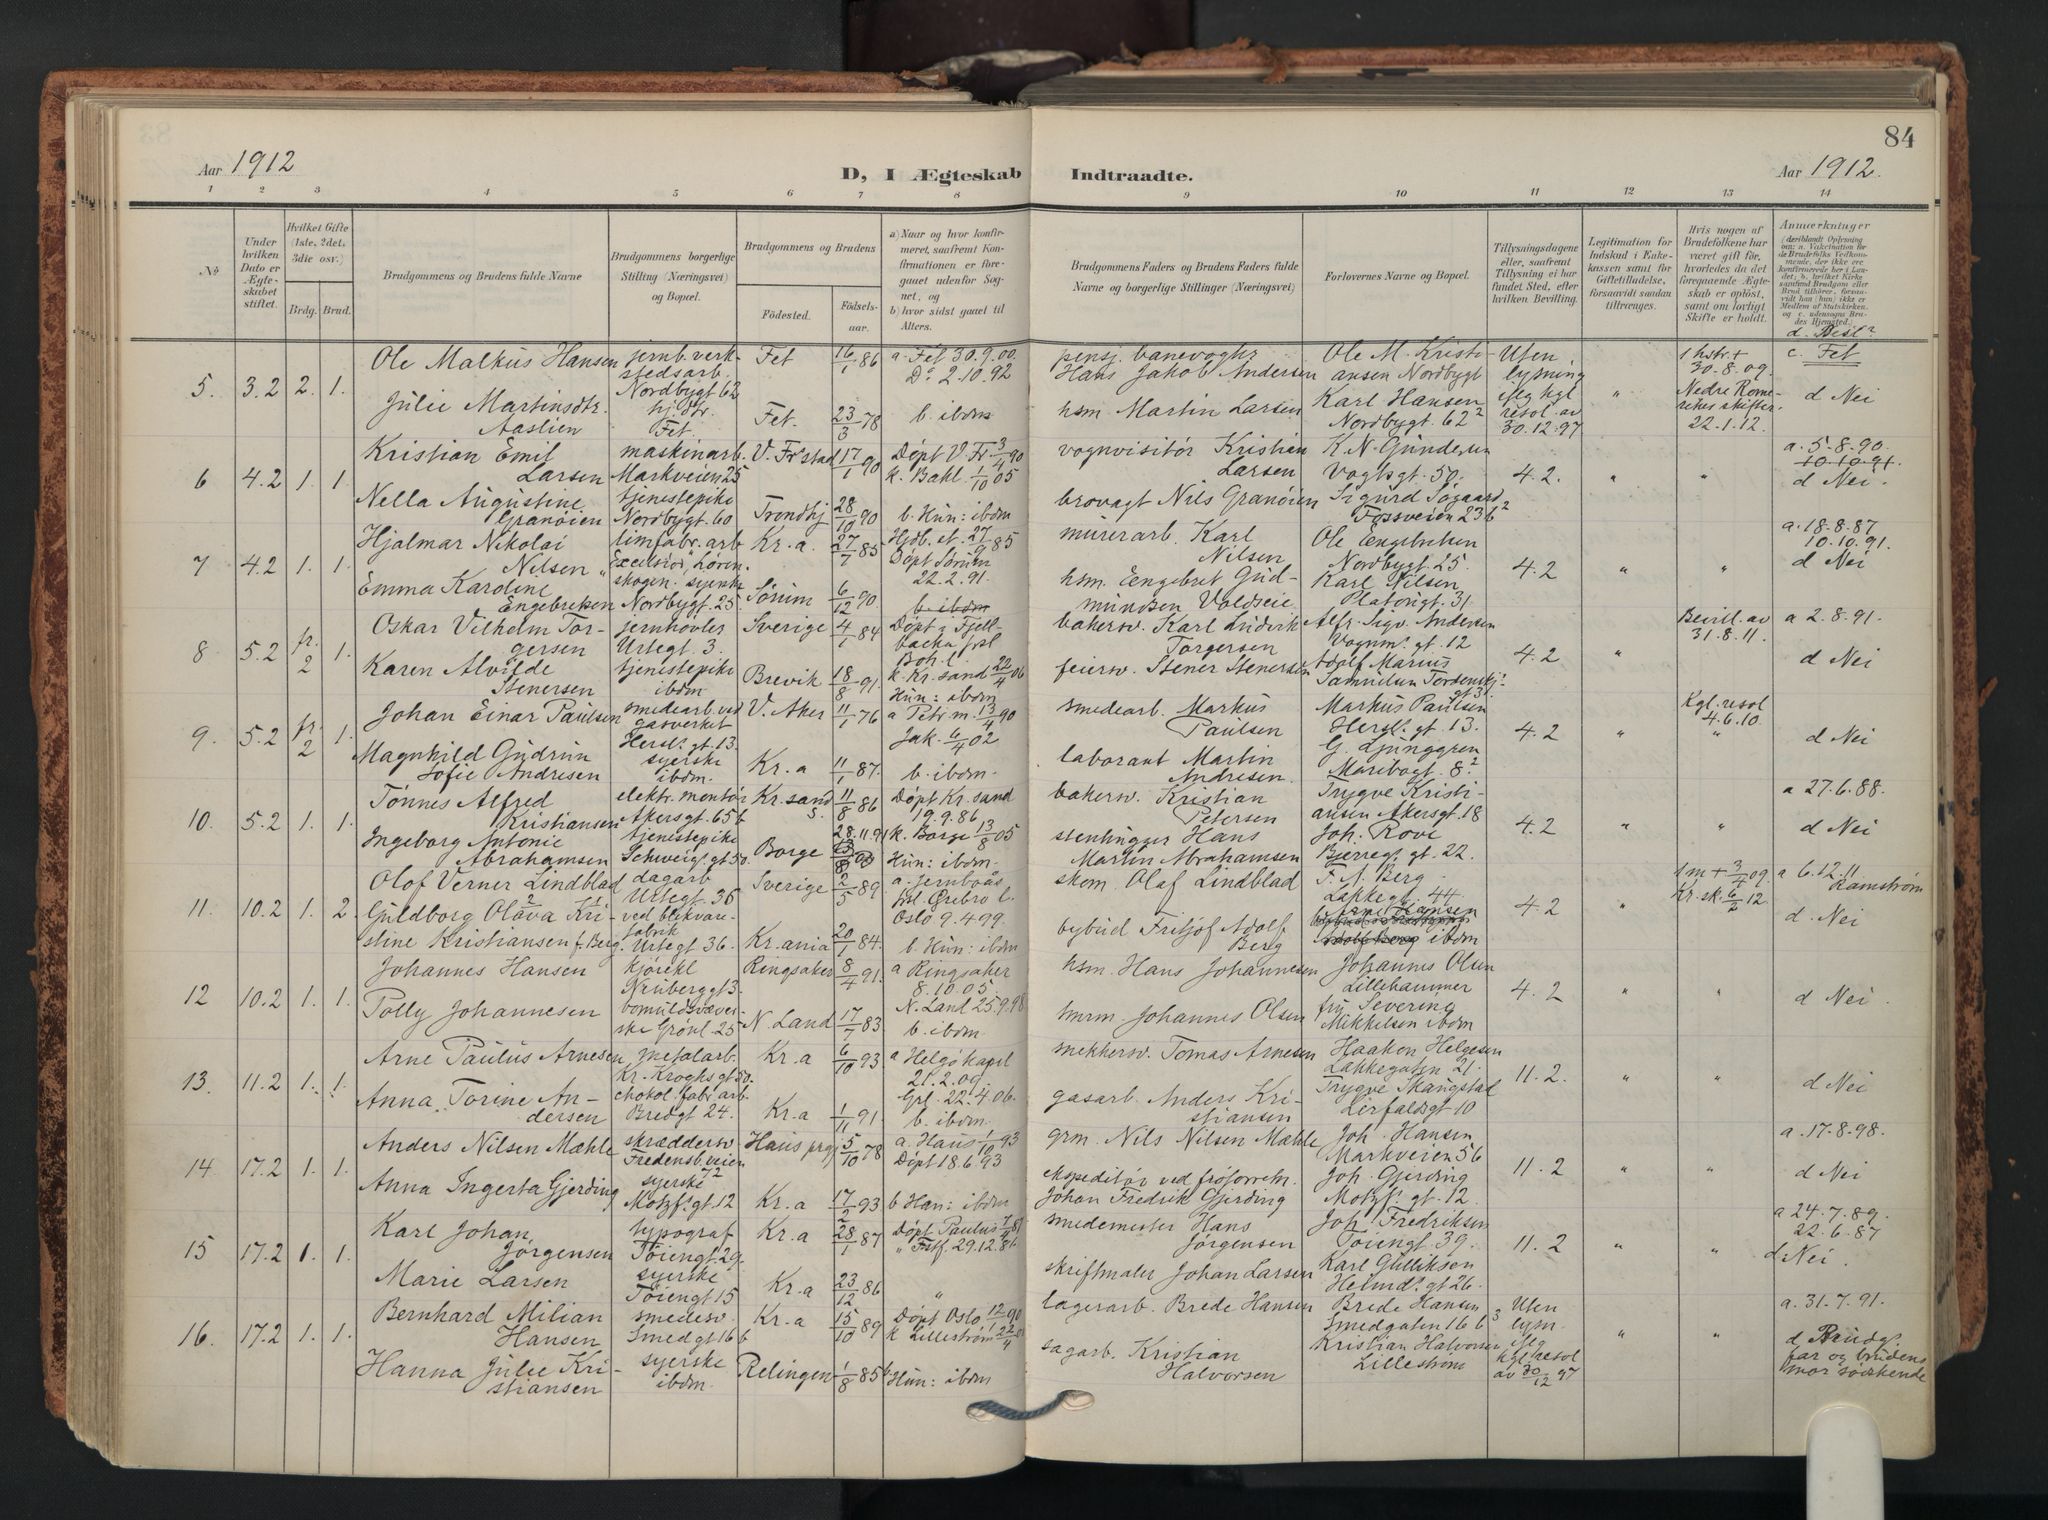 84
Aar 1912
D, I Ægteskab Indtraadte.
Aar 1912.
1 2 3 4 5 6 7 8 9 10 11 12 13 14
№
Under hvilken Dato er Ægteskabet stiftet.
Hvilket Gifte (1ste, 2det, 3die osv.)
Brdg. Brud.
Brudgommens og Brudens fulde Navne
Brudgommens borgerlige Stilling (Næringsvei) og Bopæl.
Brudgommens og Brudens
Fødested.
Fødselsaar.
a) Naar og hvor konfirmeret, saafremt Konfirmationen er foregaaet udenfor Sognet, og
b) hvor sidst gaaet til Alters.
Brudgommens Faders og Brudens Faders fulde Navne og borgerlige Stillinger (Næringsvei)
Forlovernes Navne og Bopæl.
Tillysningsdagene eller, saafremt Tillysning ei har fundet Sted, efter hvilken Bevilling.
Legitimation for Indskud i Enkekassen samt for Giftetilladelse, forsaavidt saadan tiltrænges.
Hvis nogen af Brudefolkene har været gift før, hvorledes da det foregaaende Ægteskab er opløst, samt om lovligt Skifte er holdt.
Anmærkninger (deriblandt Oplysning om: a. Vakcination for de Brudefolks Vedkommende, der ikke ere konfirmerede her i Landet; b. hvilket Kirkesamfund Brudgom eller Brud tilhører, forsavidt han (hun) ikke er Medlem af Statskirken, og c. udensogns Brudes Hjemsted.)
d. Besl?
5 3.2 2. 1.
Ole Malkus Hansen jernb.verkstedsarb. Nordbygt 62 Fet 16/1 86 a. Fet 30.9.00.
Julie Martinsdtr. Aaslien hj. før. Fet. Fet. 23/3 78 Do 2.10.92 b. ibdm
pensj. banevogtr Hans Jakob Andersen
hsm. Martin Larsen
Ole M. Kristiansen Nordbygt
Karl Hansen Nordbygt. 62²
Uten lysning iflg kgl resol. av 30.12.97 "
1 hstr + 30.8.09. Nedre Romerikes skifter. 22.1.12.
c. Fet
d Nei
6 4.2 1. 1.
Kristian Emil Larsen maskinarb. Markveien 25 V. Fr.stad 17/1 90 Døpt V. Fr 3/4 90 k. Bakl. 1/10 05
Nella Augustine Granøien tjenestepike Nordbygt. 60 Trondhj 28/10 90 b. Hun: ibdm
vognvisitør Kristian Larsen
brovagt Nils Granøien
K. N. Gundersen Vogtsgt. 50.
Sigurd Søgaard Fossveien 23b²
4.2. " "
a. 5.8.90
10.10.91.
d Nei.
7 4.2 1. 1.
Hjalmar Nikolai Nilsen limfabr. arb "Excelsiør", Lørenskogen. Kr.a. 27/7 85 Hjdb. et. 27/9 85
Emma Karoline Engebretsen syerske Nordbygt. 25. Sørum 6/12 90. Døpt Sørum 22.2.91. b. ibdm
murerarb. Karl Nilsen
hsm. Engebret Gudmundsen Valdseie
Ole Engebretsen Nordbygt 25.
Karl Nilsen Platousgt. 31.
4.2 " "
a. 18.8.87
10.10.91.
d Nei
8 5.2 fr. 2 1.
Oskar Vilhelm Torgersen jernhøvler Urtegt 3. Sverige 4/1 84 Døpt i Fjellbacka fvsl Boh. l.
Karen Alvilde Stenersen tjenestepike ibdm Brevik 18/8 91. k. Kr.sand 22/4 06 Hun: ibdm
bakersv. Karl Ludvik Torgersen
feiersv. Stener Stenersen
Alfr. Sigv. Andersen Vognm. gt. 12
Adolf Marius Samuelsen Tordenskj. gt 3.
4.2 "
Bevill. av 31.8.11.
a 2.8.91.
d Nei
9. 5.2 fr. 2 1.
Johan Einar Paulsen smedearb. ved gasverket Hersl. gt. 13. V. Aker 11/1 76 a Petr. m. 13/4 90
Magnhild Gudrun Sofie Andresen syerske ibdm. Kr.a 11/1 87. Jak. 6/4 02 b. ibdm
smedearb. Markus Paulsen
laborant Martin Andresen.
Markus Paulsen Hersl. gt. 13.
G. Ljunggren Maribogt. 8.²
4.2 "
Kgl. resol 4.6.10. "
d Nei
10. 5.2 1. 1.
Tønnes Alfred Kristiansen elektr. montør Akersgt. 65b Kr.sand S. 11/8 86 Døpt Kr.sand 19.9.86.
Ingeborg Antonie Abrahamsen tjenestepike Schweig. gt 50. Borge 28.11.91 k. Borge 13/8 05 Hun: ibdm.
bakersv. Kristian Petersen
stenhugger Hans Martin Abrahamsen
Trygve Kristiansen Akersgt. 18
Joh. Rove Bjerreg. gt. 22.
4.2 " "
a 27.6.88.
d Nei
11. 10.2 1. 2
Olof Verner Lindblad dagarb Urtegt. 36 Sverige 2/5 89. a. Jernboås fvsl. Ørebro l.
Guldborg Olava Kristine Kristiansen f. Berg. ved blikvarefabrik Urtegt 36. Kr.ania 20/1 84. Oslo 9.4.99. b. Hun: ibdm
skom. Olaf Lindblad
bybud Fritjof Adolf Berg
F. A. Berg Lakkegt. 44
Hansen ibdm
4.2 "
1 m + 3/4 09. Kr. sk. 6/2 12.
a 6.12.11 Ramstrøm
d. Nei
12 10.2 1. 1.
Johannes Hansen kjørekl Nrubergt 3. Ringsaker 8/4 91. a Ringsaker 8.10.05.
Polly Johannesen bomuldsvæverske Grønl. 25 N. Land 17/7 83 N. Land 25.9.98 b. ibdm.
hsm. Hans Johannesen
hmrm. Johannes Olsen
Johannes Olsen Lillehammer
fru Severine Mikkelsen ibdm
4.2 " "
d Nei.
13. 11.2 1. 1.
Arne Paulus Arnesen metalarb. Kr. Kroghs gt 50. Kr.a 6/10 93 a Helgø kapel 21.2.09
Anna Torine Andersen chokol. fabr arb. Bredgt 24. Kr.a 1/11 91. Grl. 22.4.06. b. ibdm.
snekkersv. Tomas Arnesen
gasarb. Anders Kristiansen
Haakon Helgesen Lakkegaten 21.
Trygve Skaugstad Lirfaldsgt 10
11.2. " "
d Nei
14. 17.2 1. 1.
Anders Nilsen Mæhle skræddersv Fredensb.veien 72 Haus prgj 5/10 78 a. Haus 1/10 93
Anna Ingerta Gjerding syerske Motzf. gt. 12 Kr.a 17/2 93 Døpt 18.6.93 b Han: ibdm.
grm. Nils Nilsen Mæhle
ekspeditør ved frøforretn. Johan Fredrik Gjerding
Joh. Hansen Markveien 56
Joh. Gjerding Motzf. gt. 12.
11.2 " "
a. 17.8.98.
d Nei
15 17.2 1. 1.
Karl Johan Jørgensen typograf Tøiengt. 29. Kr.a 28/1 87 Døpt Paulus 7/4 87
Marie Larsen syerske Tøiengt 15 Kr.a 23/12 86 " Frtf. 29.12.86 "
smedemester Hans Jørgensen
skriftmaler Johan Larsen
Joh. Fredriksen Tøiengt. 39.
Karl Gulliksen Heimd. gt 26.
11.2 " "
a 24.7.89.
22.6.87
d. Nei.
16. 17.2 1. 1.
Bernhard Milian Hansen smedesv. Smedgt 16b Kr.a 15/10 89 Døpt Oslo 12/1 90 k Lillestrøm 22/4
Hanna Julie Kristiansen syerske ibdm. Relingen 1/8 85 b Hun: ibdm
lagerarb. Brede Hansen
sagarb. Kristian Halvorsen
Brede Hansen Smedgaten 16b ³
Kristian Halvorsen Lillestrøm
Uten lysn. iflg kgl. resol av 30/12 97 " "
a. 31.7.91.
d Brudg. far og brudens mor søskende